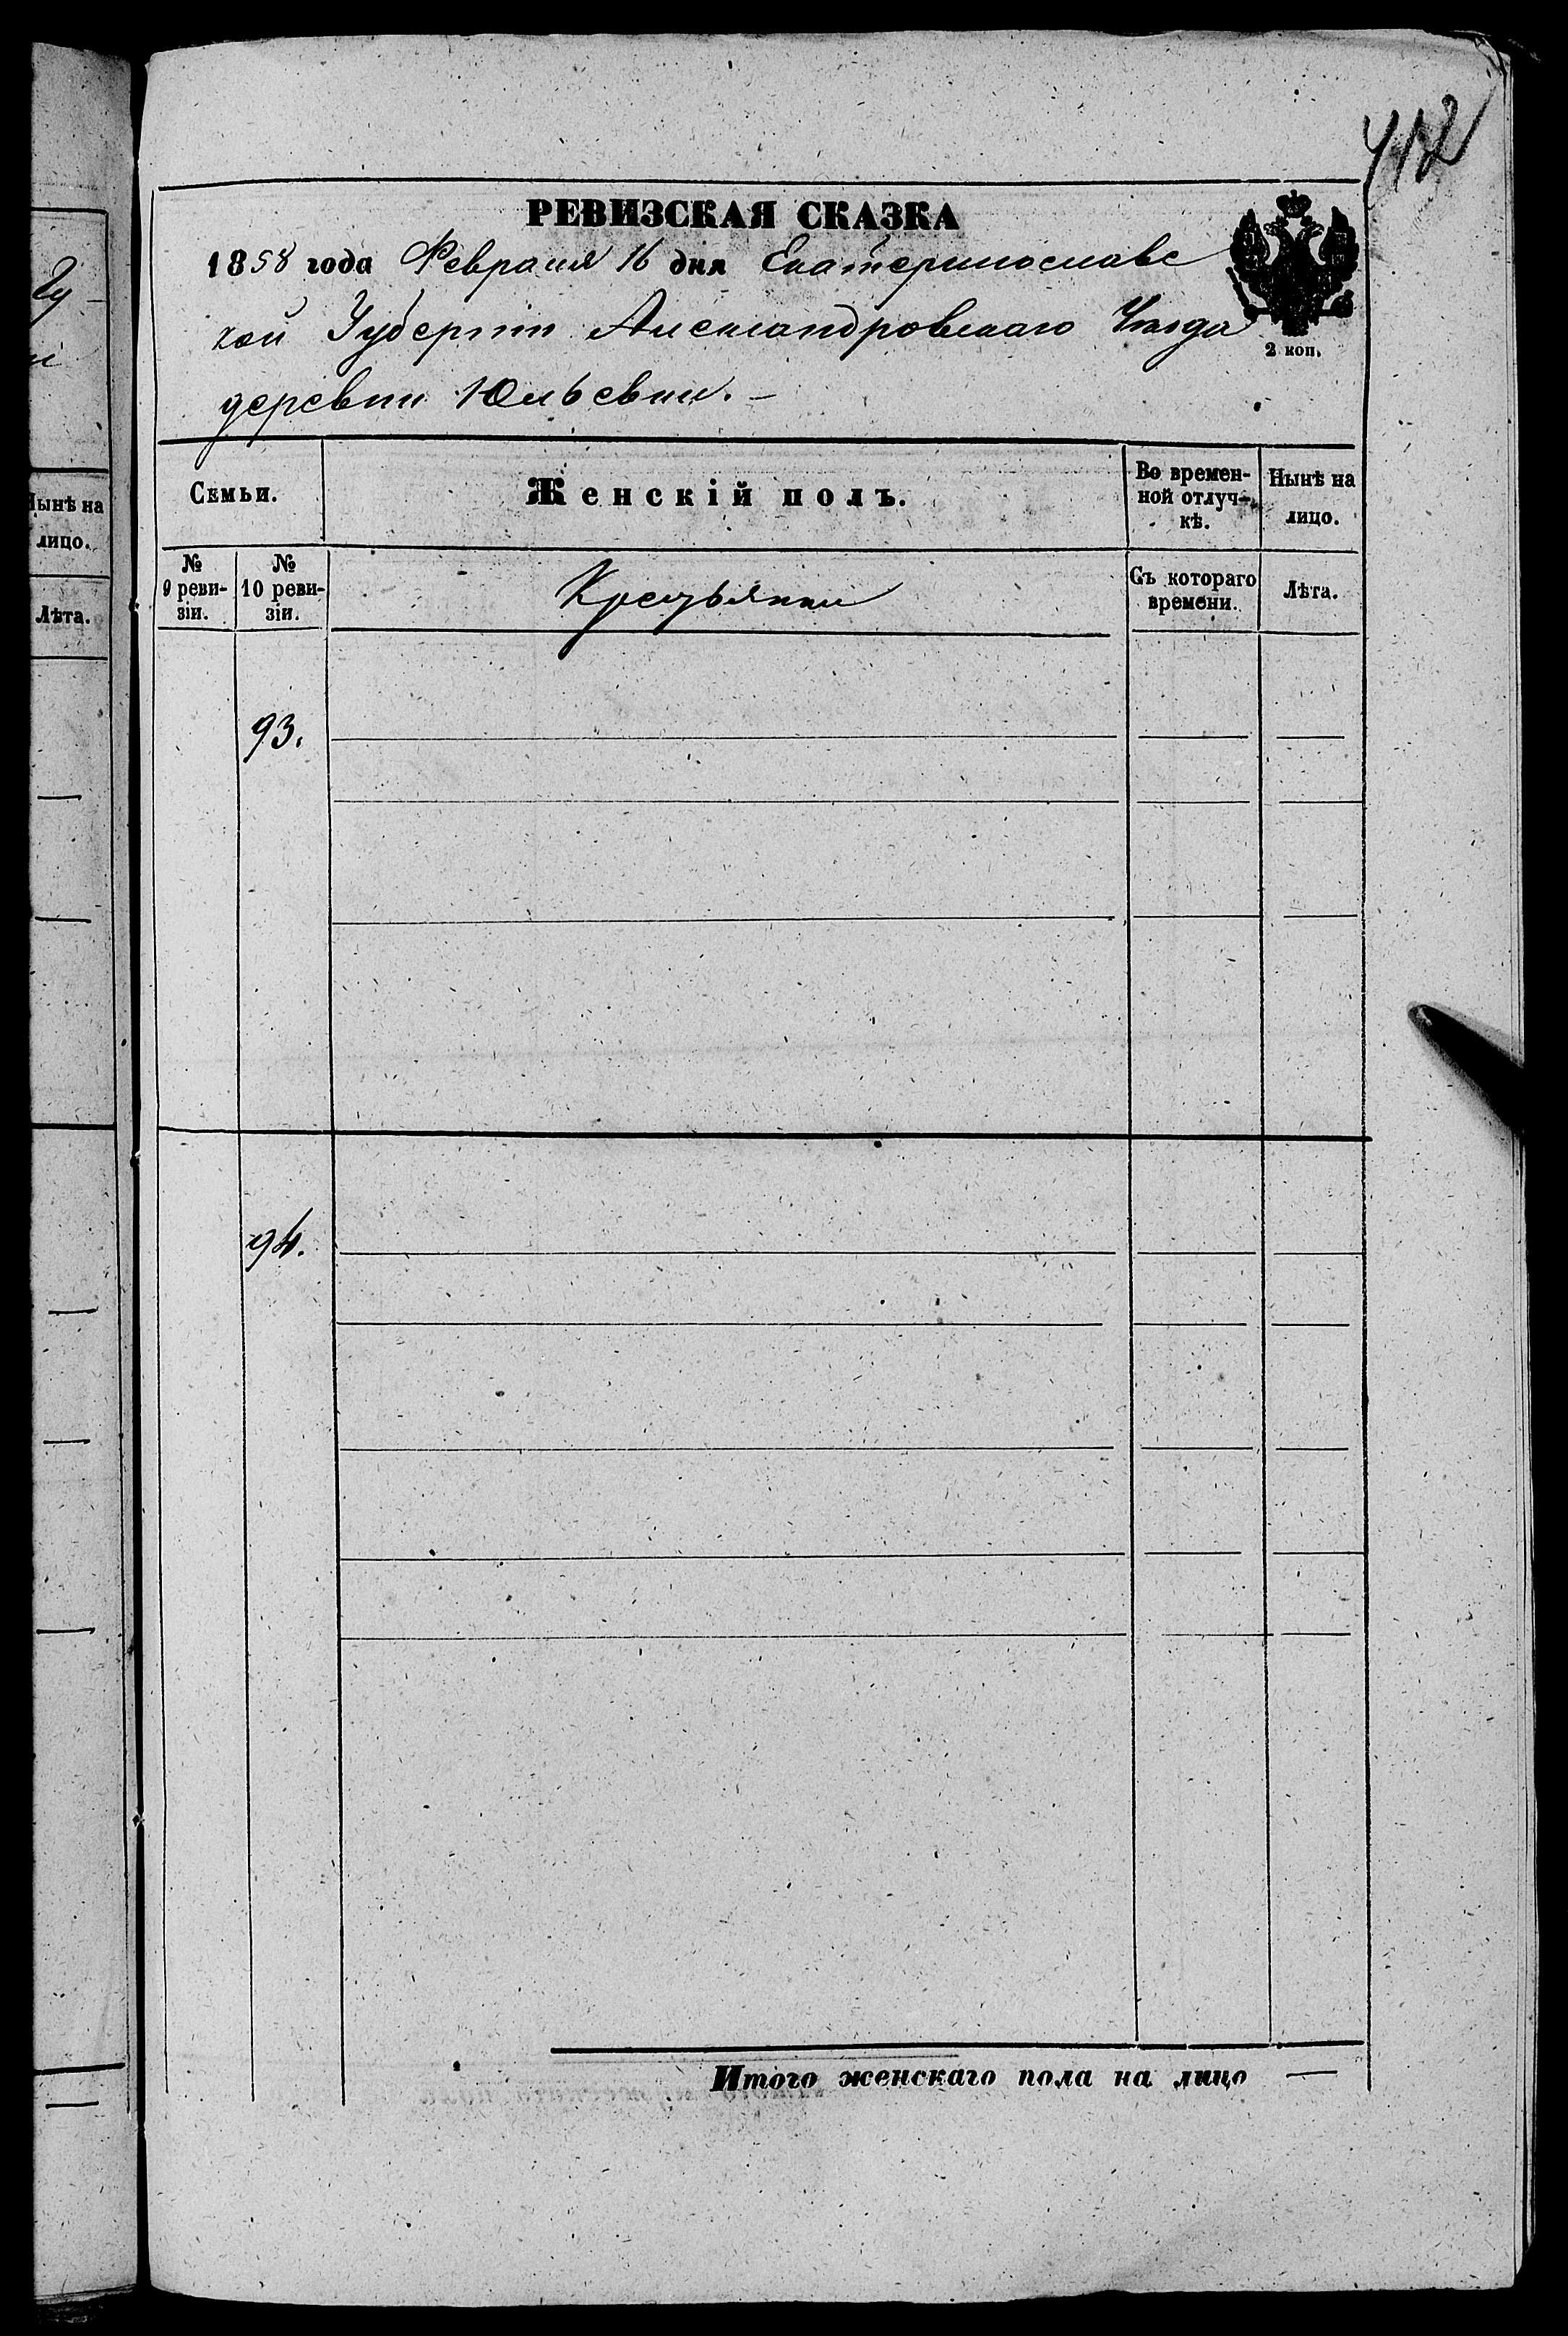 412
РЕВИЗСКАЯ СКАЗКА
1858 года Февраля 16 дня Екатеринославс
кой Губерніи Александровскаго Уѣзда
2 коп.
деревни Юльевки.
Семьи.
Женскій полъ.
Во времен-
ной отлуч-
кѣ.
Нынѣ на
лицо.
№
9 реви-
зіи.
№
10 реви-
зіи.
Крестьянки
Съ котораго
времени.
Лѣта.
93.
94.
Итого женскаго пола на лицо —
Нынѣ на
лицо.
Лѣта.